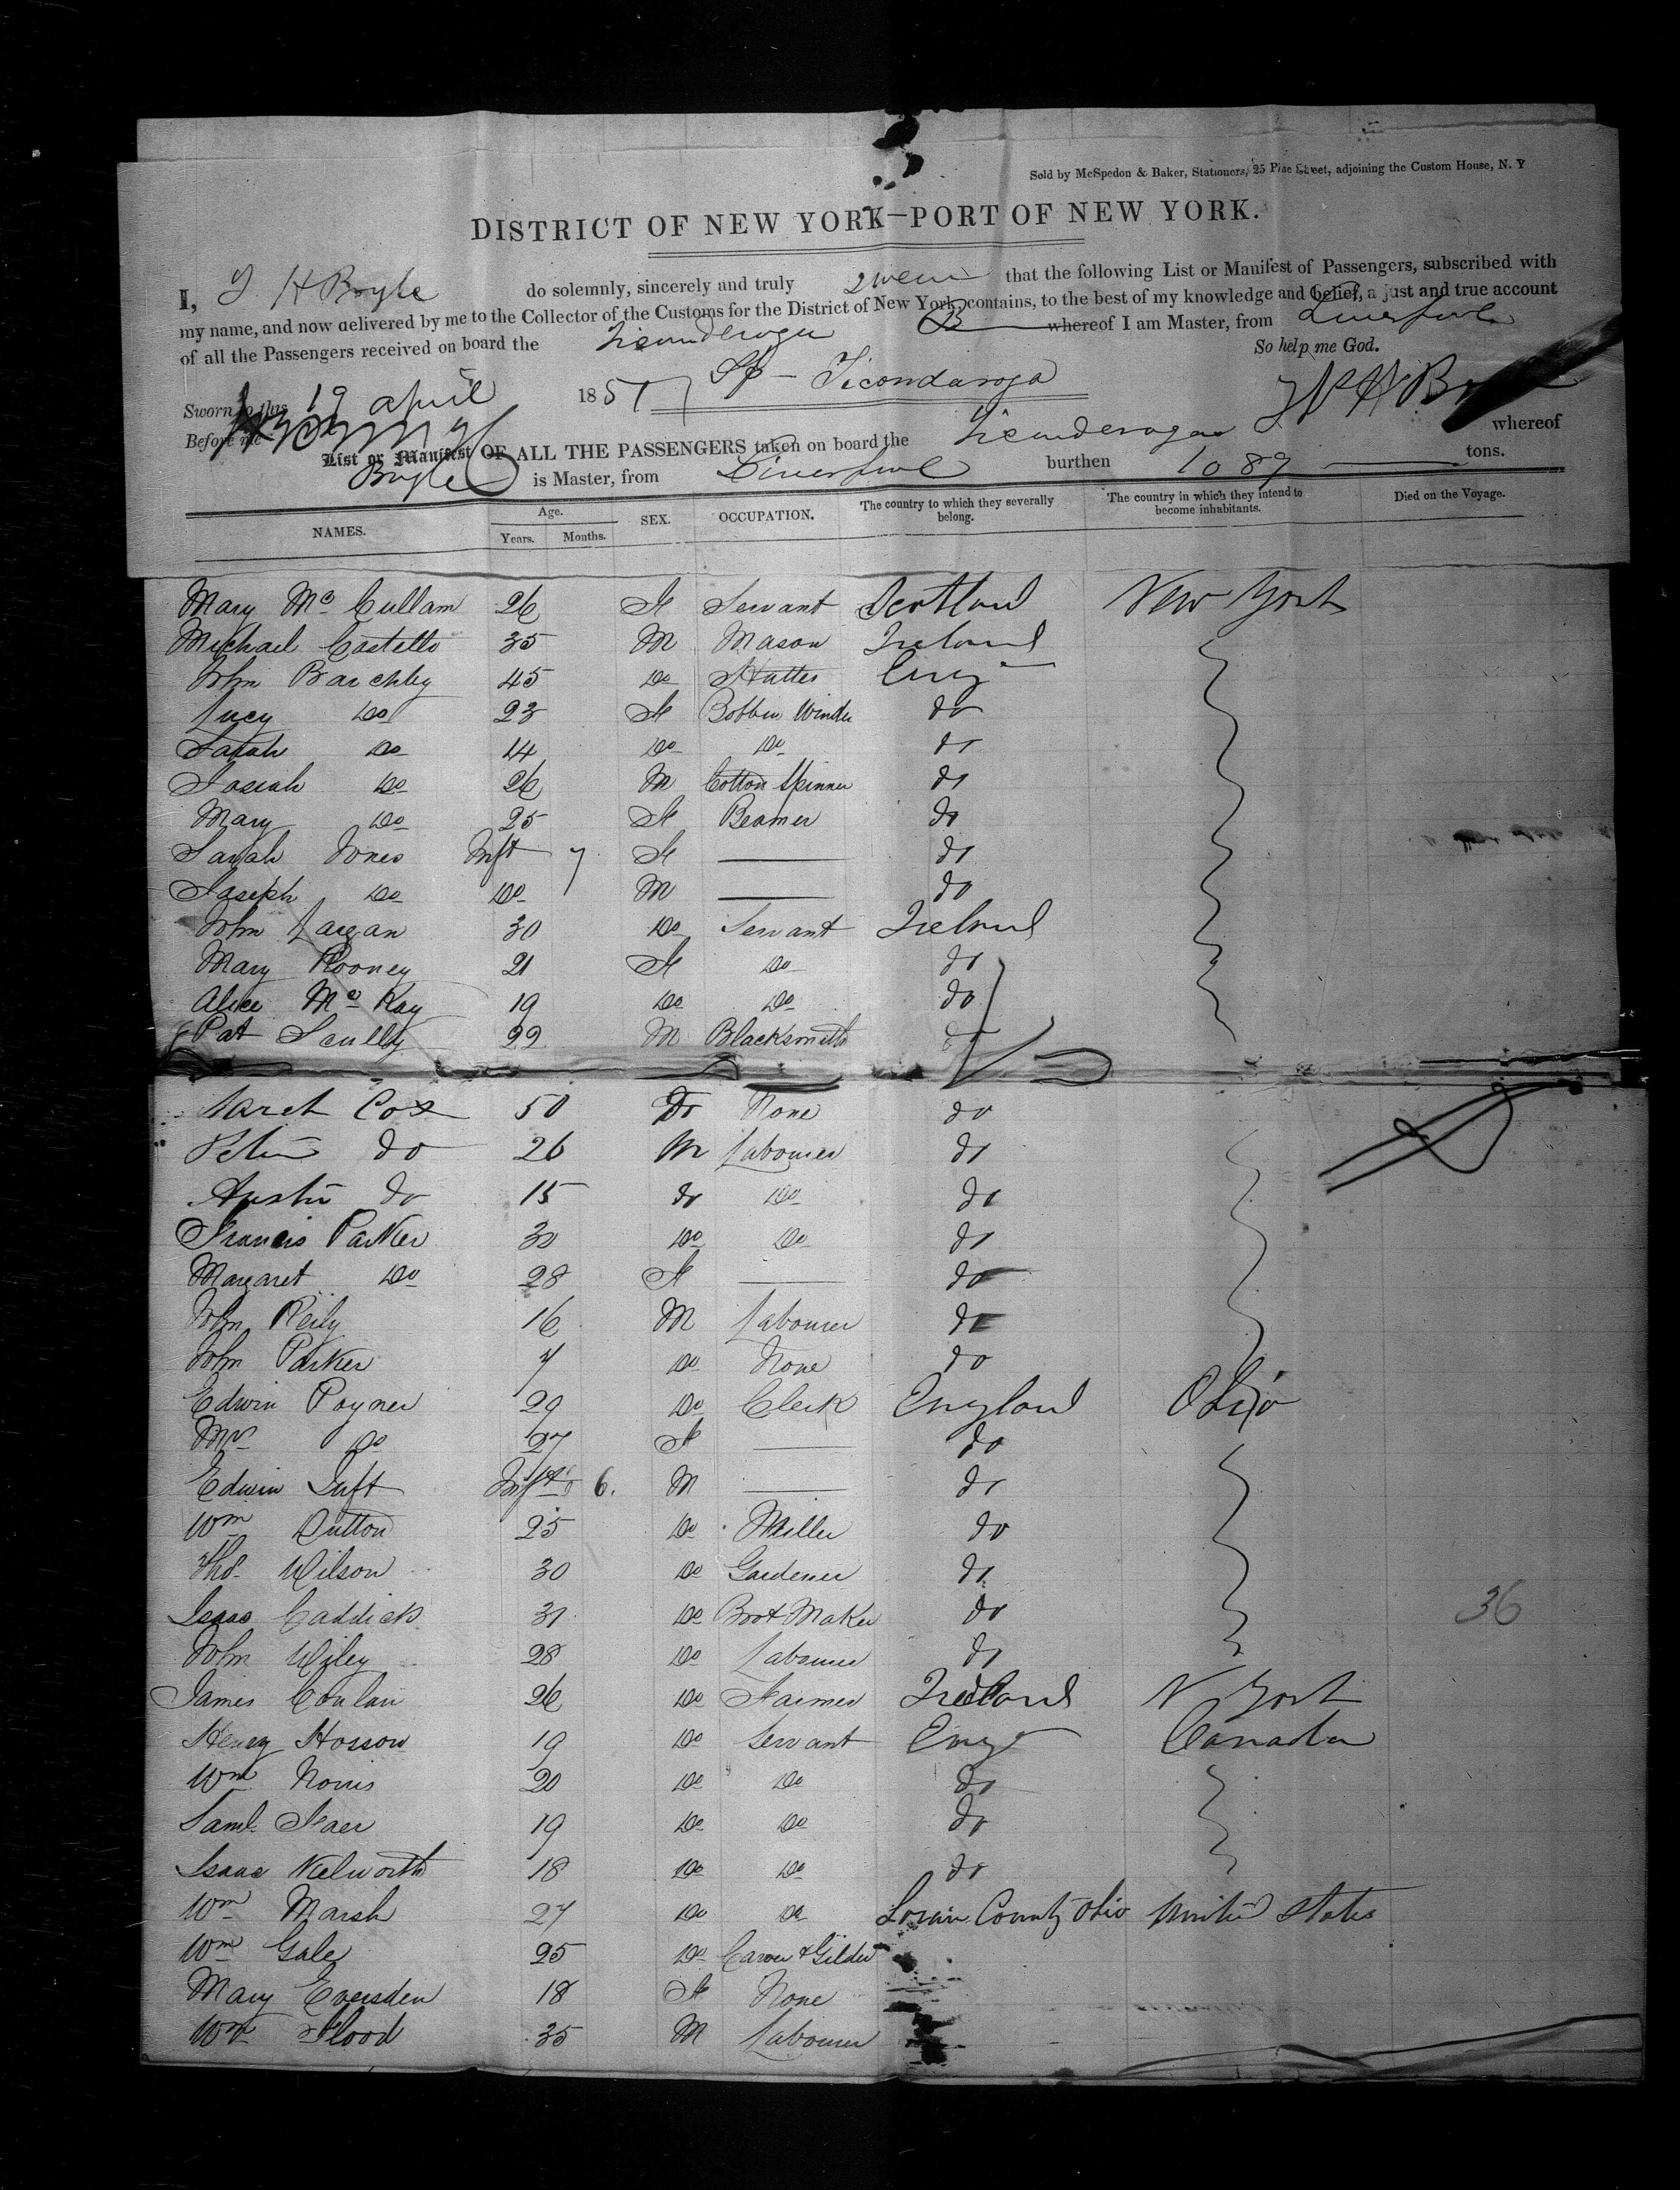 Sold by McSpedon & Baker, Stationers, 25 Pine Street, adjoining the Custom House, N. Y
DISTRICT OF NEW YORK—PORT OF NEW YORK.
I, T. H Boyle do solemnly, sincerely and truly swear that the following List or Manifest of Passengers, subscribed with
my name, and now delivered by me to the Collector of the Customs for the District of New York, contains, to the best of my knowledge and belief, a just and true account
of all the Passengers received on board the Ticonderoga whereof I am Master, from Liverpool
So help me God.
Sworn to this 19 april 1851 Sp - Ticonderoga
Before me
List or Manifest OF ALL THE PASSENGERS taken on board the Ticonderoga whereof
Boyle is Master, from Liverpool burthen 1089 tons.
NAMES. Age. Years. Months. SEX. OCCUPATION. The country to which they severally belong. The country in which they intend to become inhabitants. Died on the Voyage.
Mary Mc Cullam 26 F Servant Scotland New York
Michael Costello 35 M Mason Ireland
John Barchby 45 Do Hatter Eng
Lucy Do 23 F Bobbin Winder do
Sarah Do 14 Do Do do
Josiah Do 26 M Cotton Spinner do
Mary Do 25 F Beamer do
Sarah Jones Inft 7 F do
Joseph Do Do M do
John Largan 30 Do Servant Ireland
Mary Rooney 21 F Do do
Alice Mc Kay 19 Do Do do
Pat Scully 22 M Blacksmith do
Cox 50 Do None do
Peter do 26 M Labourer do
Austin do 15 do Do do
Francis Parker 30 Do Do do
Margaret Do 28 F do
John Reily 16 M Labourer do
John Parker 7 Do None do
Edwin Poyner 29 Do Clerk England Ohio
Mrs Do 27 F do
Edwin Inft 6. M do
Wm Dutton 25 Do Miller do
Thos Wilson 30 Do Gardener do
Isaac Caddick 31 Do Boot Maker do
John Wiley 28 Do Labourer do
James Conlan 26 Do Farmer Ireland N York
Henry Hosson 19 Do Servant Eng Canada
Wm Norris 20 Do Do do
Saml Faer 19 Do Do do
Isaac Kelworth 18 Do Do do
Wm Marsh 27 Do Do Lorain County Ohio United States
Wm Gale 25 Do Carver & Gilder
Mary Eversden 18 F None
Wm Flood 35 M Labourer
36